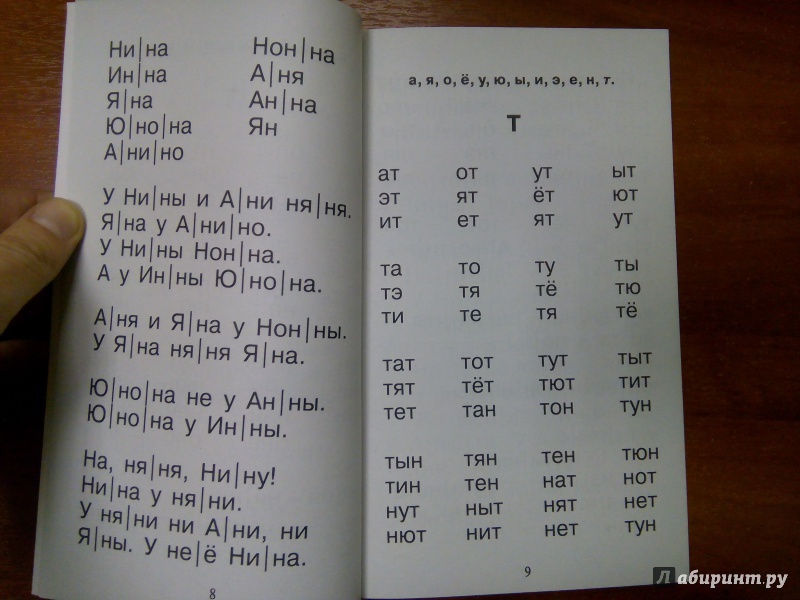 Ни|на Нон|на
Ин|на А|ня
Я|на Ан|на
Ю|но|на Ян
А|ни|но
У Ни|ны и А|ни ня|ня.
Я|на у А|ни|но.
У Ни|ны Нон|на.
А у Ин|ны Ю|но|на.
А|ня и Я|на у Нон|ны.
У Я|на ня|ня Я|на.
Ю|но|на не у Ан|ны.
Ю|но|на у Ин|ны.
На, ня|ня, Ни|ну!
Ни|на у ня|ни.
У ня|ни ни А|ни, ни
Я|ны. У не|ё Ни|на.
8
а, я, о, ё, у, ю, ы, и, э, е, н, т.
Т
ат от ут ыт
эт ят ёт ют
ит ет ят ут
та то ту ты
тэ тя тё тю
ти те тя тё
тат тот тут тыт
тят тёт тют тит
тет тан тон тун
тын тян тен тюн
тин тен нат нот
нут ныт нят нет
нют нит нет тун
9
Лабиринт.ру